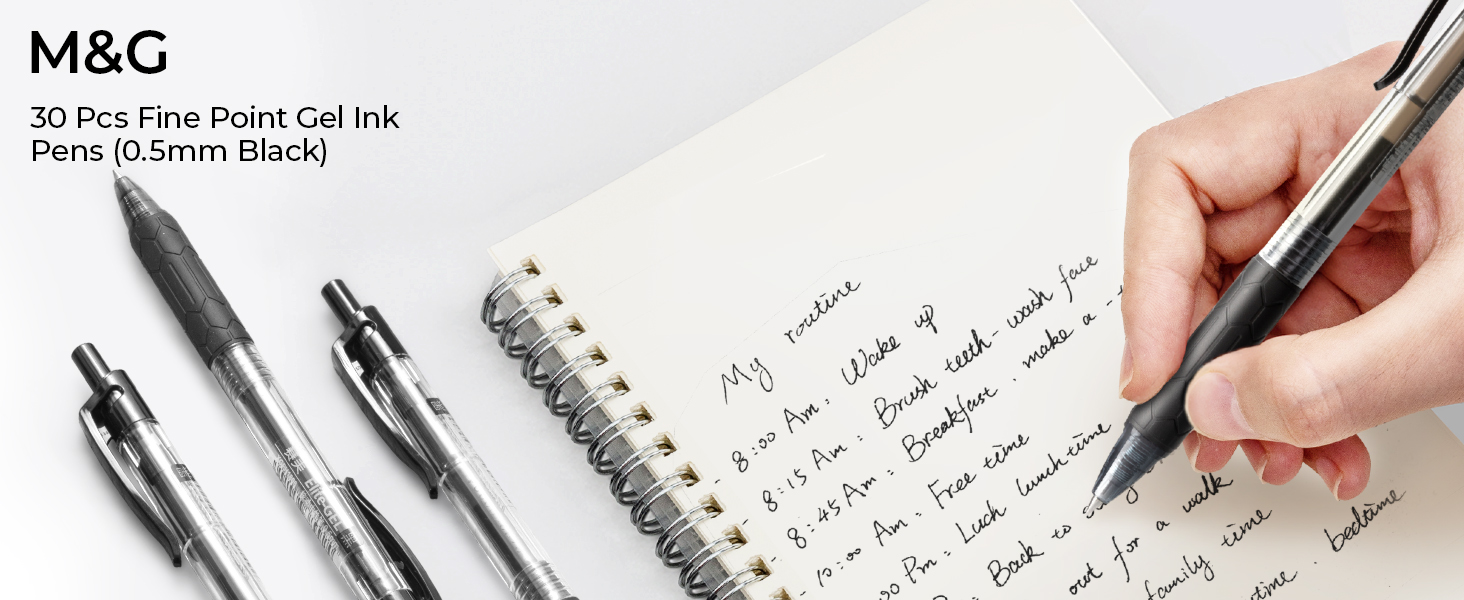 M&G
30 Pcs Fine Point Gel Ink
Pens (0.5mm Black)
My routine
8:00 Am: Wake up
8:15 Am: Brush teeth - wash face
8:45 Am: Breakfast . make a
10:00 Am: Free time
00 Pm: Luch lunch time
Back to
out for a walk
family time
time . bedtime
Elite-GEL